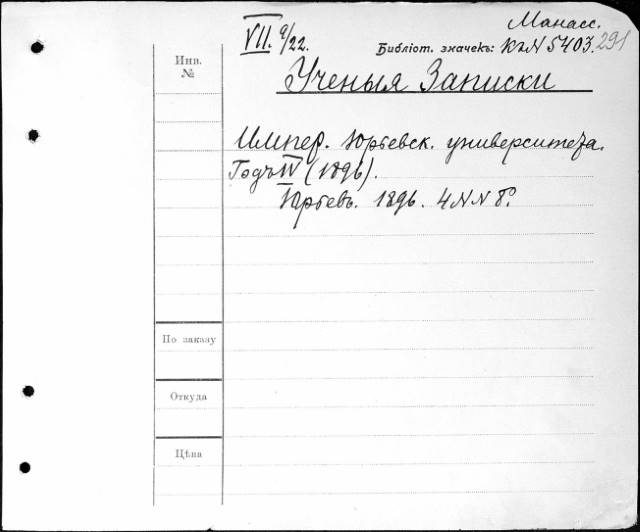 Манасс.
VII. 9/22.
Библіот. значекъ: К2N5403.291
Инв.
№
Ученыя Записки
Импер. Юрьевск. университета.
Годъ IV (1896).
Юрьевъ. 1896. 4 N N 8º.
По заказу
Откуда
Цѣна